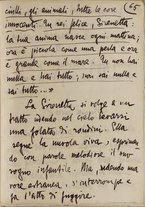 cielli, gli animali, tutte le cose 65
innocenti. Tu sei felice, Sirenetta:
la tua anima nasce ogni mattina;
ora è piccola come una perla e ora
è grande come il mare. Tu non hai
nulla e hai tutto; non sai nulla e
sai tutto. —>
La Sirenetta si volge a un
tratto udendo nel cielo levarsi
una folata di rondini. Ella
segue la nuvola viva,
do con parole melodiose il suo
sogno infantile. Ma, udendo una
voce estranea, s'interrompe e
fa l'atto di fuggire.